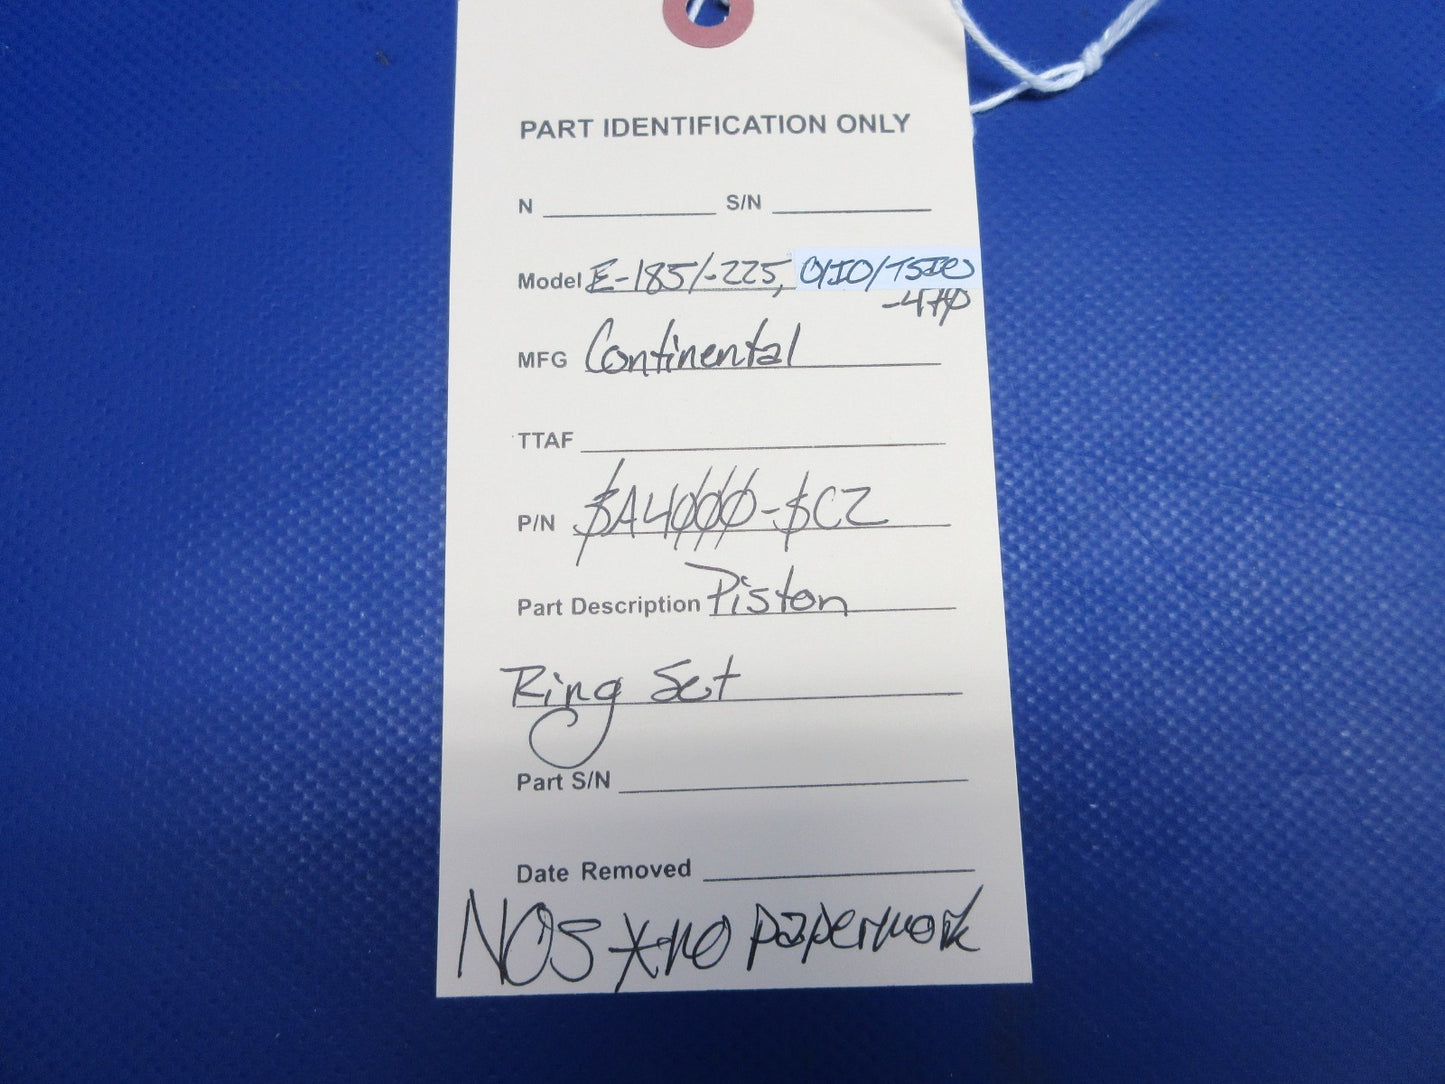 PART IDENTIFICATION ONLY
N S/N
Model E-185/-225, O/IO/TSIO
-470
MFG Continental
TTAF
P/N SA4000-SC2
Part Description Piston
Ring Set
Part S/N
Date Removed
NOS *no paperwork